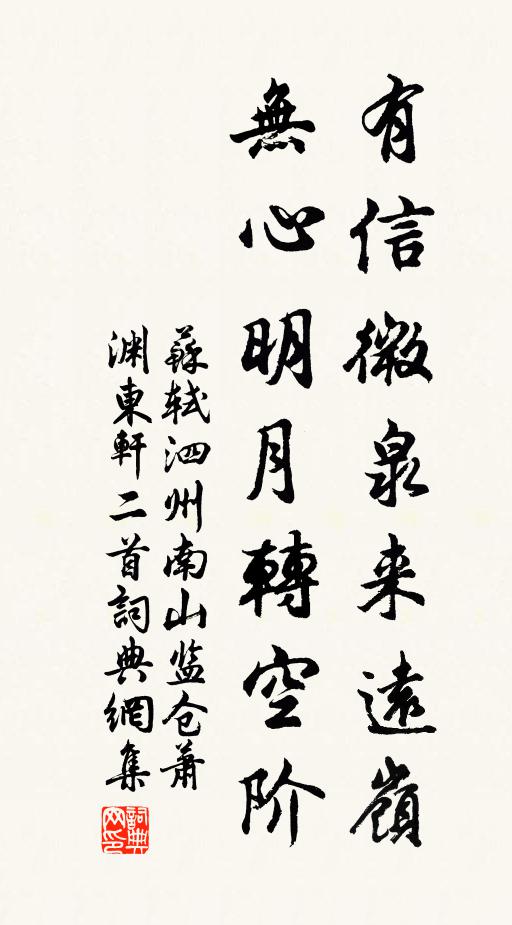 有信微泉来遠嶺
無心明月轉空阶
蘇轼泗州南山监仓萧
渊東軒二首詞典網集
詞典网印